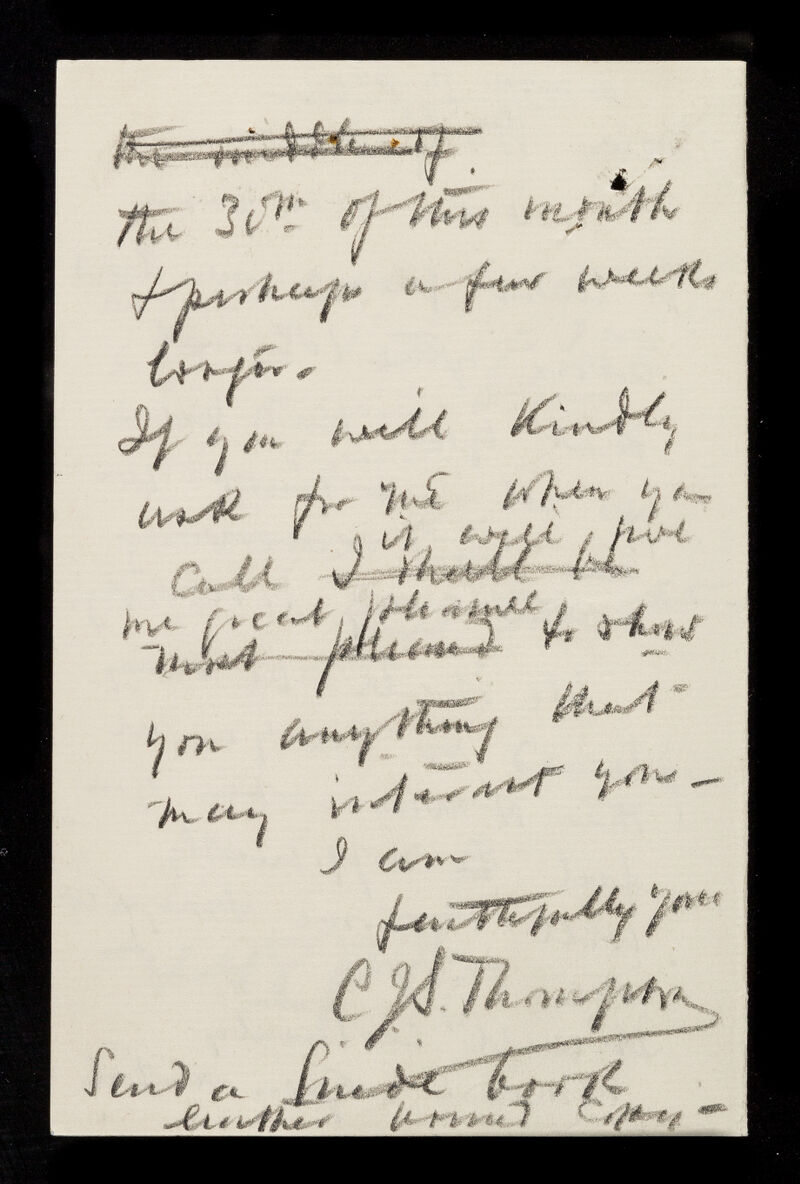 the middle of
the 30th of this month
& perhaps a few weeks
longer.
If you will kindly
ask for me when you
it will give
call I shall be
me great pleasure
most pleased to show
you anything that
may interest you -
I am
faithfully yours
C.J.S. Thompson
Send a Guide book
leather bound copy -